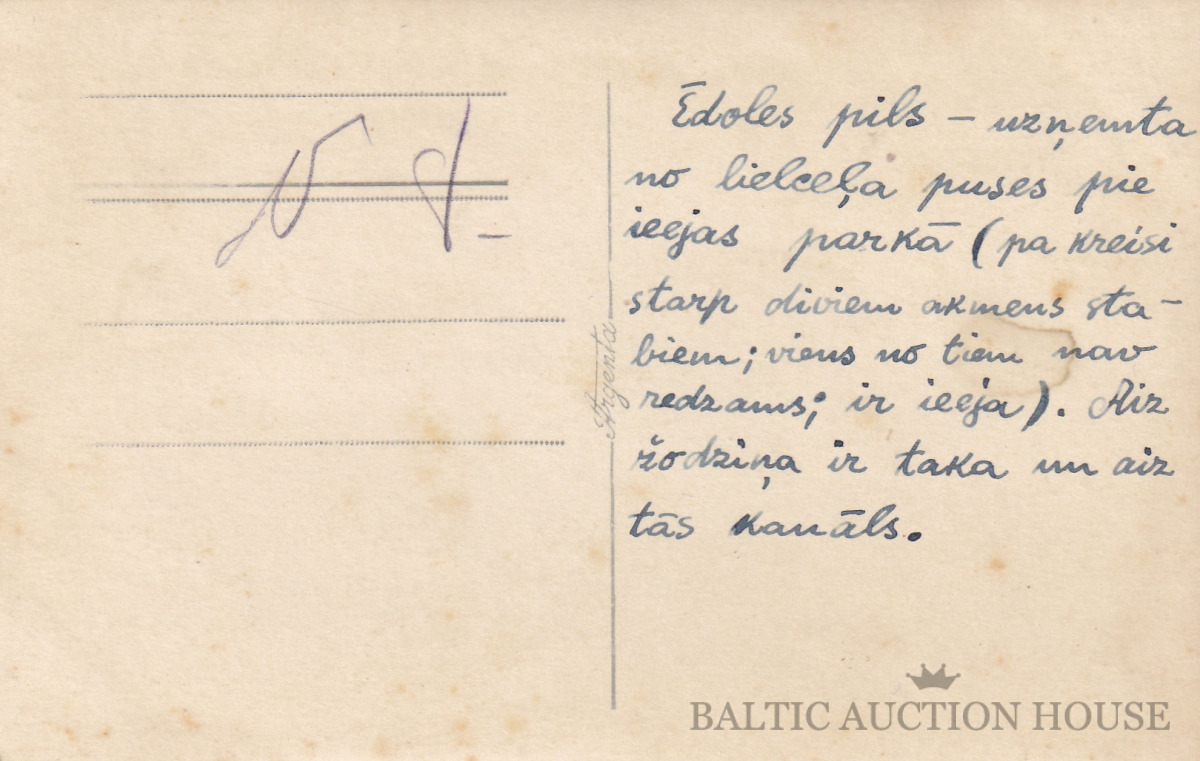 Ēdoles pils – uzņemta
no lielceļa puses pie
ieejas parkā (pa kreisi
starp diviem akmens sta-
biem; viens no tiem nav
redzams; ir ieeja). Aiz
žodziņa ir taka un aiz
tās kanāls.
Argenta
BALTIC AUCTION HOUSE